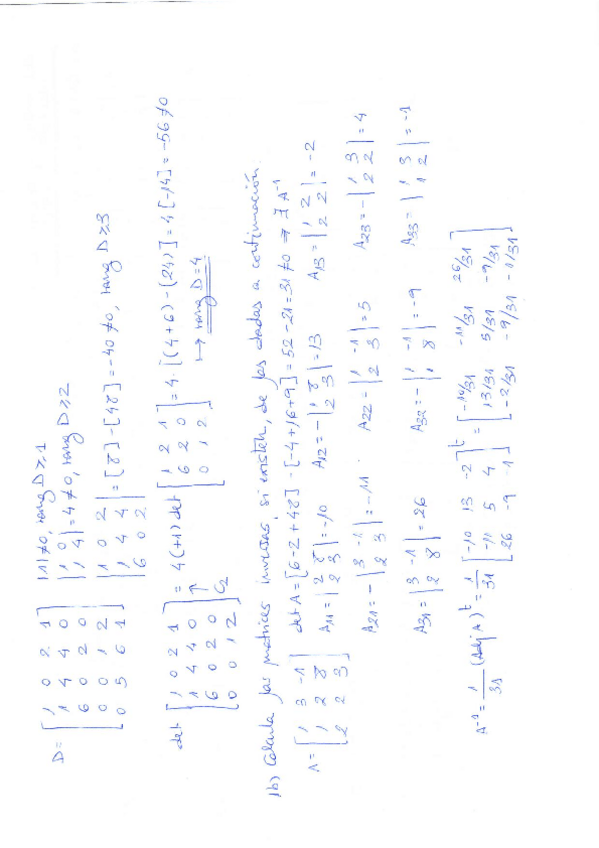 D = [1 0 2 1; 1 4 4 0; 6 0 2 0; 0 0 1 2; 0 5 6 1] |1| ≠ 0, rang D ≥ 1
|1 0; 1 4| = 4 ≠ 0, rang D ≥ 2
|1 0 2; 1 4 4; 6 0 2| = [8] - [48] = -40 ≠ 0, rang D ≥ 3
det [1 0 2 1; 1 4 4 0; 6 0 2 0; 0 0 1 2] = 4(+1) det [1 2 1; 6 2 0; 0 1 2] = 4·[(4+6)-(24)] = 4[-14] = -56 ≠ 0
↑ C2 ↦ rang D = 4
1b) Calcula las matrices inversas, si existen, de las dadas a continuación.
A = [1 3 -1; 1 2 8; 2 2 3] det A = [6-2+48] - [-4+16+9] = 52-21 = 31 ≠ 0 ⇒ ∃ A⁻¹
A11 = |2 8; 2 3| = -10 A12 = -|1 8; 2 3| = 13 A13 = |1 2; 2 2| = -2
A21 = -|3 -1; 2 3| = -11 A22 = |1 -1; 2 3| = 5 A23 = -|1 3; 2 2| = 4
A31 = |3 -1; 2 8| = 26 A32 = -|1 -1; 1 8| = -9 A33 = |1 3; 1 2| = -1
A⁻¹ = 1/31 (Adj A)ᵗ = 1/31 [-10 13 -2; -11 5 4; 26 -9 -1]ᵗ = [-10/31 -11/31 26/31; 13/31 5/31 -9/31; -2/31 -9/31 -1/31]